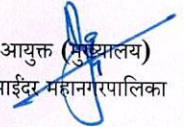 आयुक्त (मुख्यालय)
भाईंदर महानगरपालिका